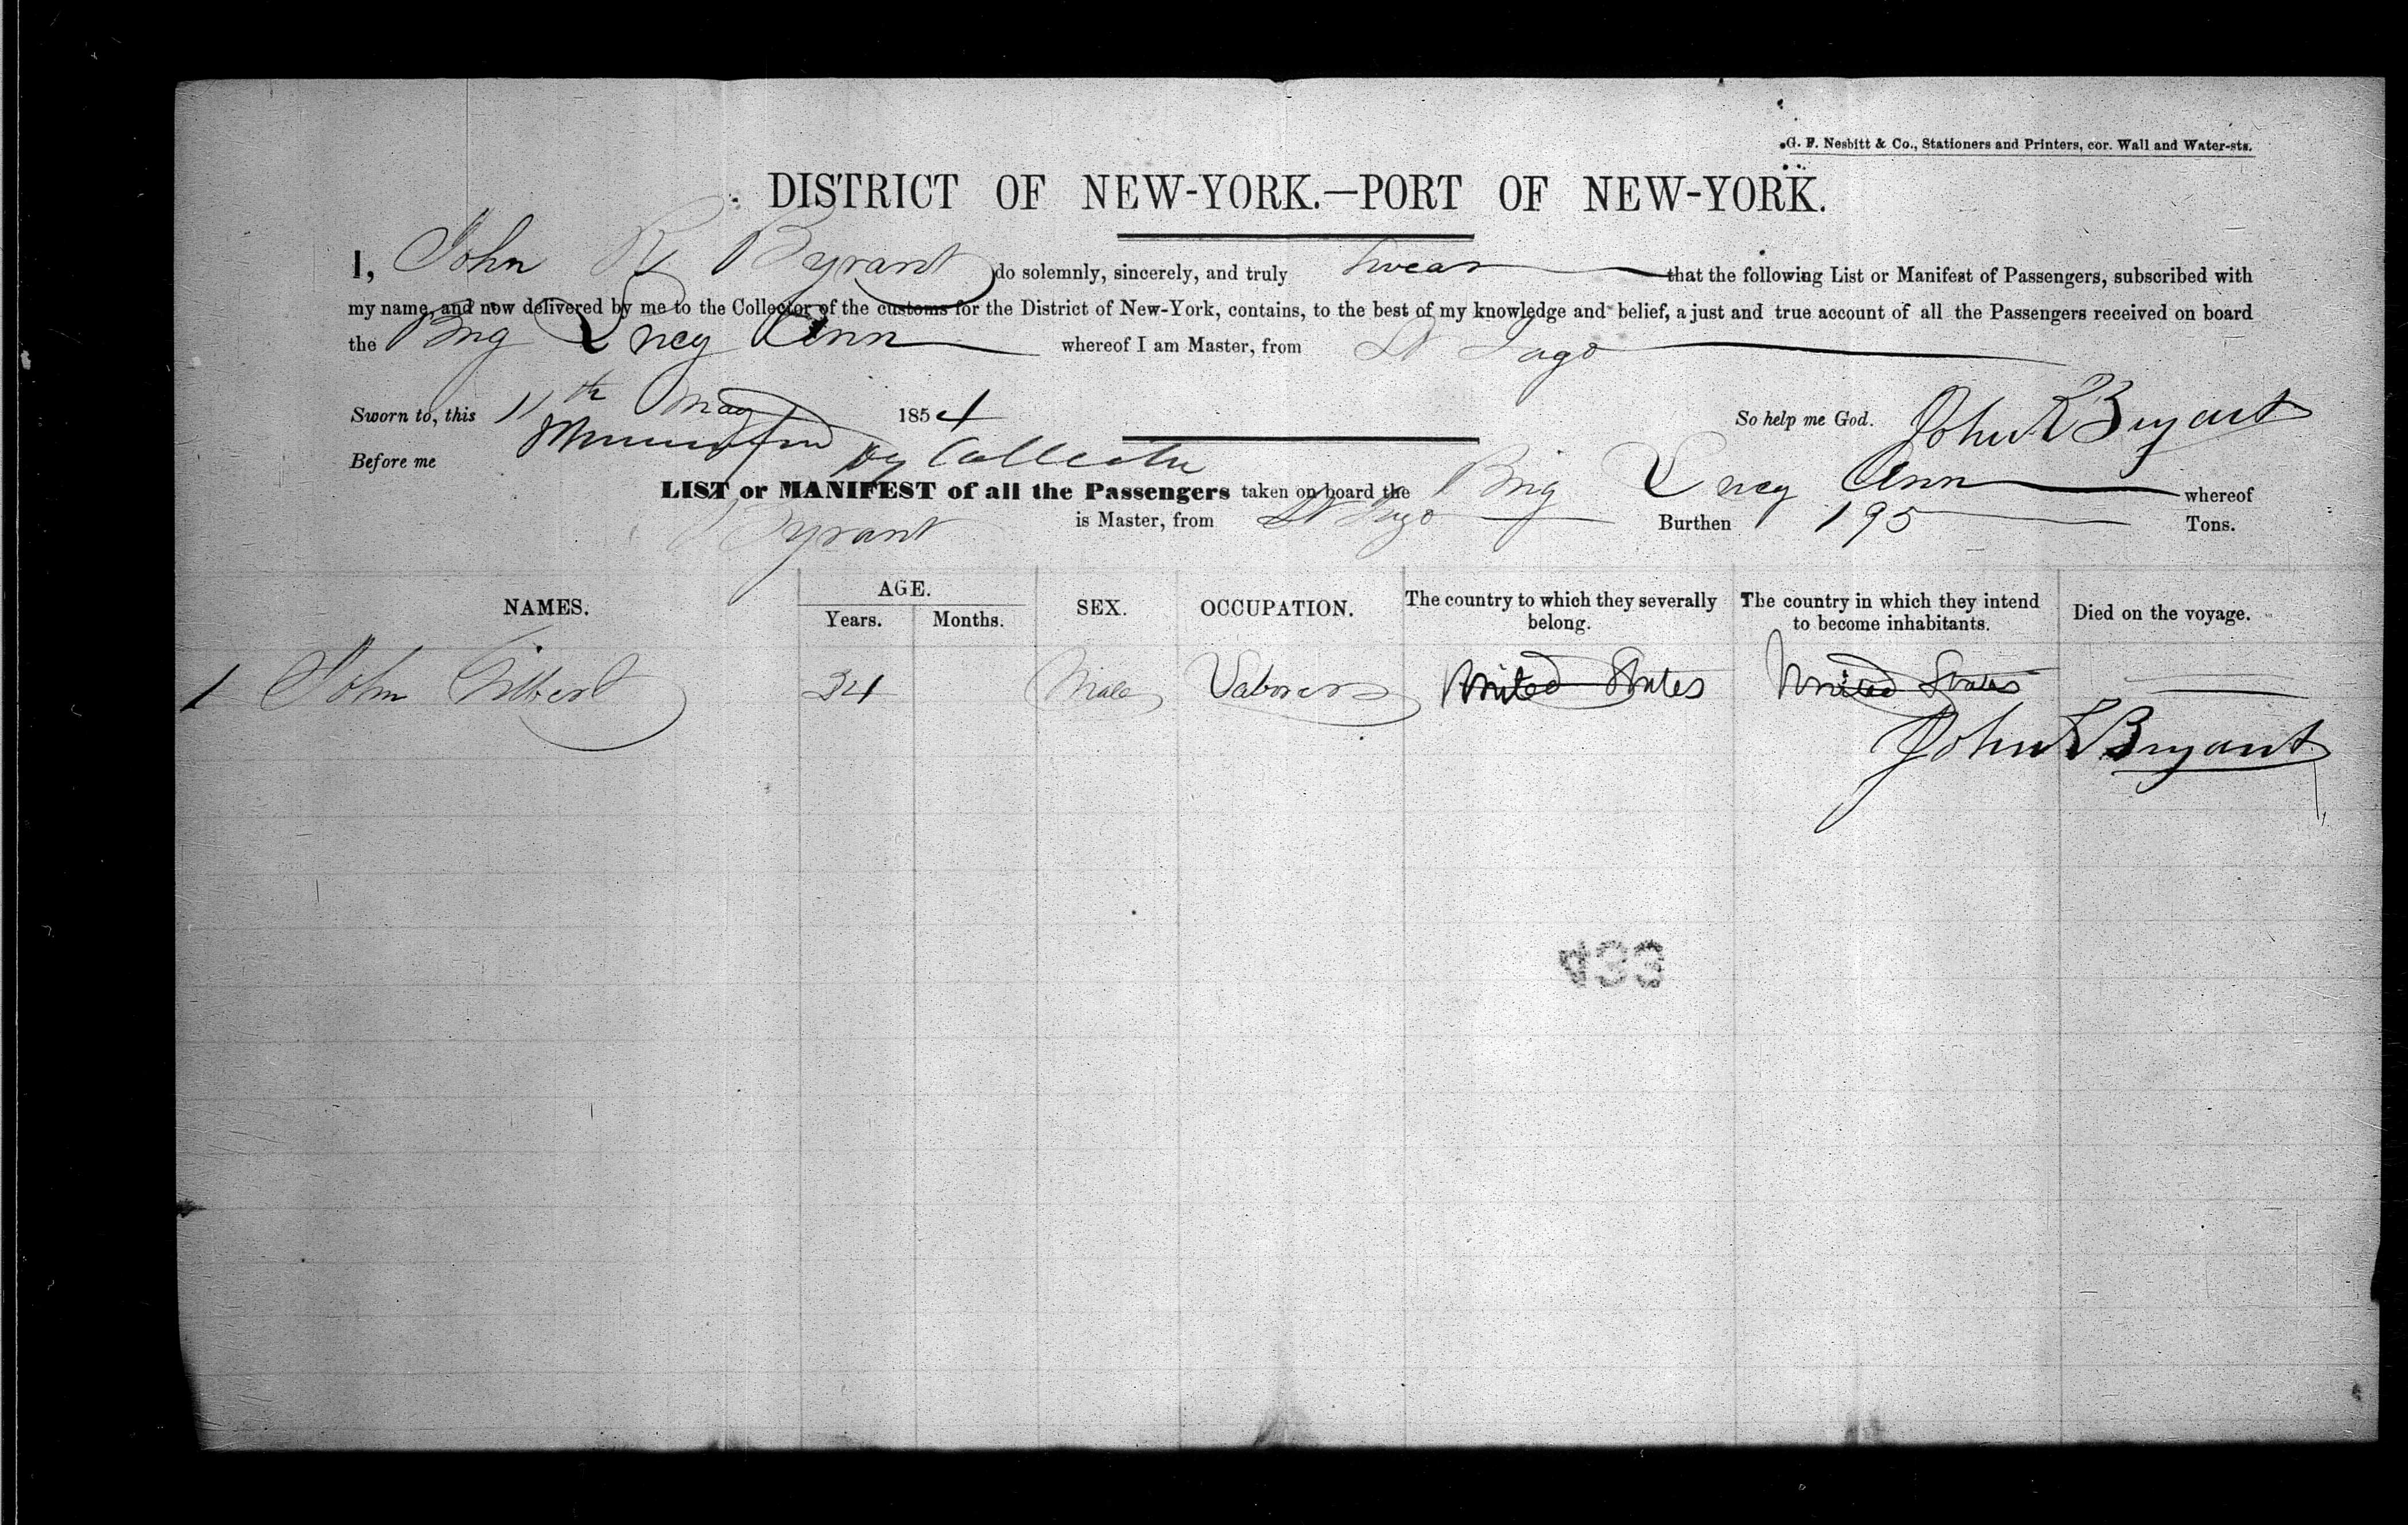 G. F. Nesbitt & Co., Stationers and Printers, cor. Wall and Water-sts.
DISTRICT OF NEW-YORK.—PORT OF NEW-YORK.
I, John R. Byrant do solemnly, sincerely, and truly Swear that the following List or Manifest of Passengers, subscribed with
my name, and now delivered by me to the Collector of the customs for the District of New-York, contains, to the best of my knowledge and belief, a just and true account of all the Passengers received on board
the Brig Lucy Ann whereof I am Master, from St Jago
Sworn to, this 11th May 1854 So help me God. John R Bryant
Before me Dy Collector
LIST or MANIFEST of all the Passengers taken on board the Brig Lucy Ann whereof
Byrant is Master, from St Jago Burthen 195 Tons.
NAMES. AGE. Years. Months. SEX. OCCUPATION. The country to which they severally belong. The country in which they intend to become inhabitants. Died on the voyage.
1 John Gilbert 34 Male Laborer United States United States
John R Bryant
433